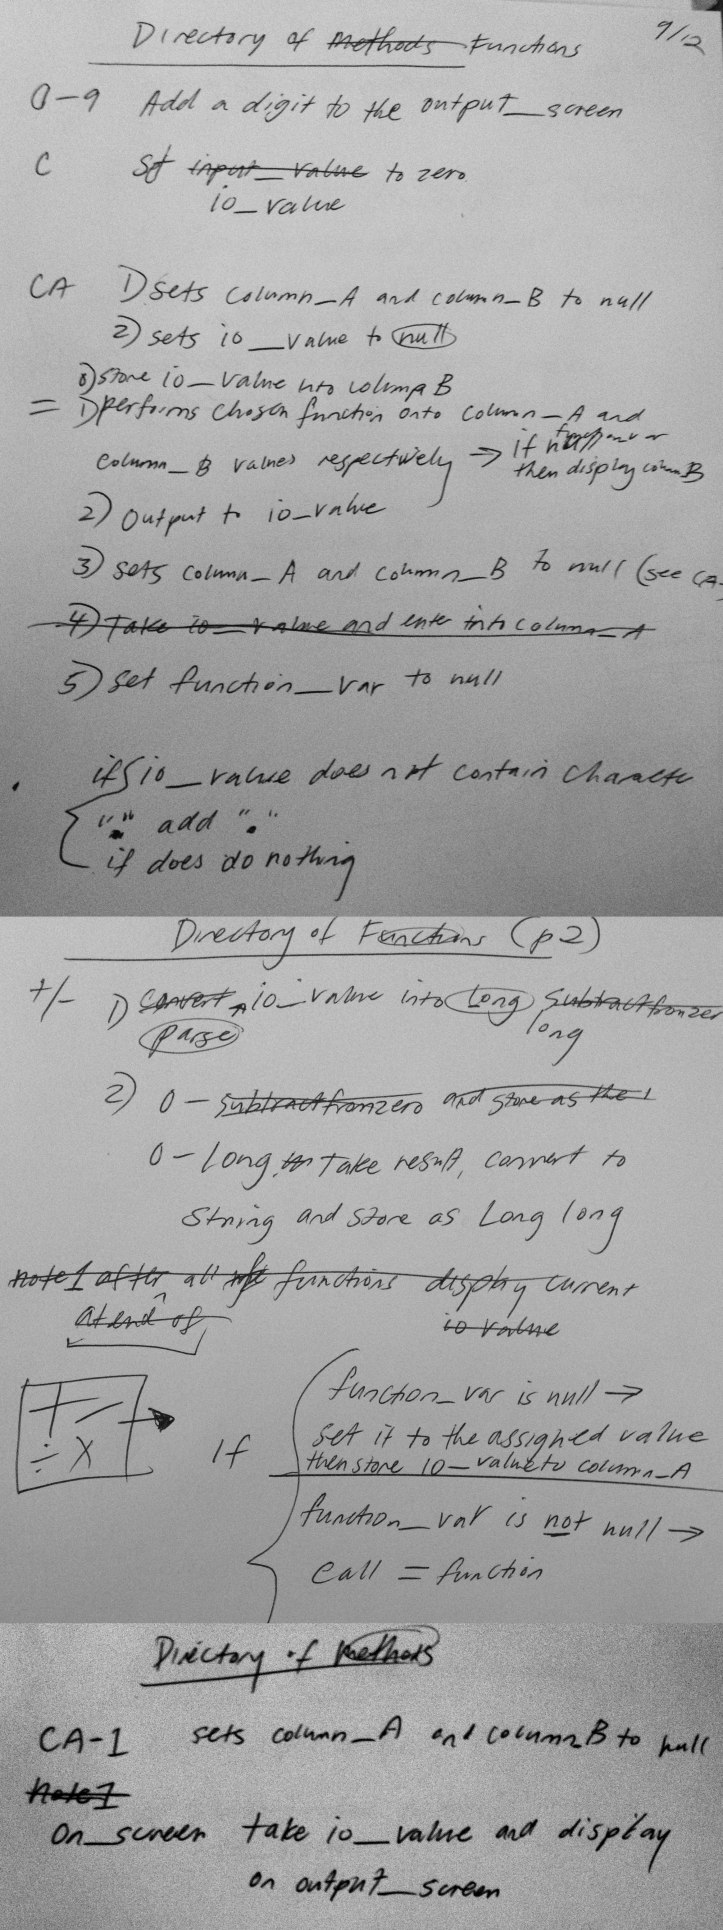 Directory of Methods Functions 9/12
0-9 Add a digit to the output_screen
C Set input_value to zero
io_value
CA 1) sets column_A and column_B to null
2) sets io_value to null
0) store io_value into column B
= 1) performs chosen function onto column_A and
column_B values respectively → if null function var
then display column B
2) output to io_value
3) sets column_A and column_B to null (see CA-
4) Take io_value and enter into column_A
5) set function_var to null
. if io_value does not contain characte
"." add "."
if does do nothing
Directory of Functions (p2)
+/- 1) convert io_value into Long subtractfromzer
parse long
2) 0 - subtractfromzero and store as the
0 - long. Take result, convert to
String and store as Long long
note1 after all functions display current
at end of io value
+ -
÷ X
If
function_var is null →
set it to the assigned value
then store io_value to column_A
function_var is not null →
call = function
Directory of Methods
CA-1 sets column_A and column_B to null
Note1
on_screen take io_value and display
on output_screen